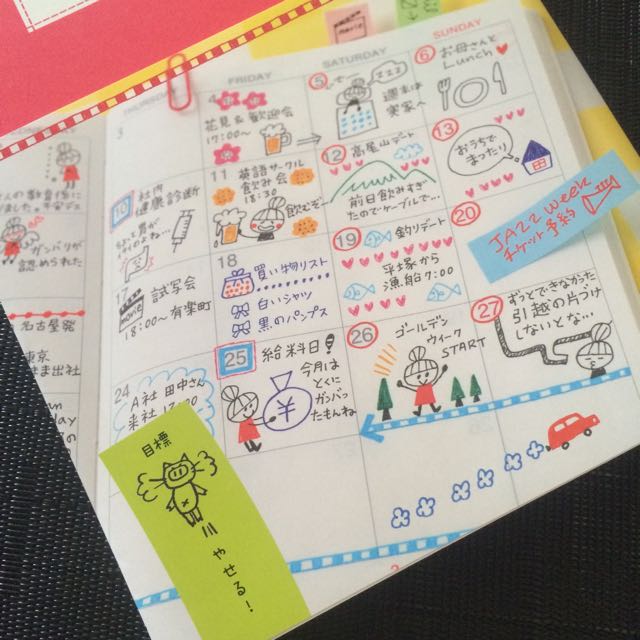 FRIDAY
SATURDAY
SUNDAY
3
4
花見&歓迎会
17:00〜
5
zzz
週末
実家へ
6
お母さんと
Lunch
10
社内
健康診断
11
英語サークル
飲み会
18:30
飲むぞ〜
12
高尾山デート
前日飲みすぎ
たのでケーブルで…
13
おうちで
まったり
17
試写会
MOVIE
18:00〜有楽町
18
買い物リスト
白いシャツ
黒のパンプス
19
釣りデート
平塚から
漁船7:00
20
JAZZ week
チケット予約
24
A社 田中さん
来社
25
給料日!
今月は
とくに
ガンバッ
たもんね
¥
26
ゴールデン
ウィーク
START
27
ずっとできなかった
引越の片づけ
しないとな…
目標
やせる!
ガンバリが
認められた
名古屋発
東京